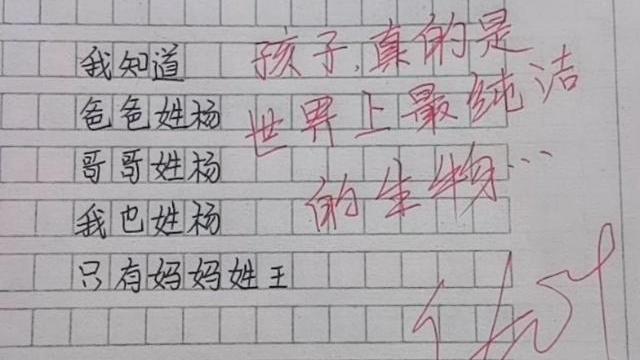 我知道
爸爸姓杨
哥哥姓杨
我也姓杨
只有妈妈姓王
孩子,真的是
世界上最纯洁
的生物…